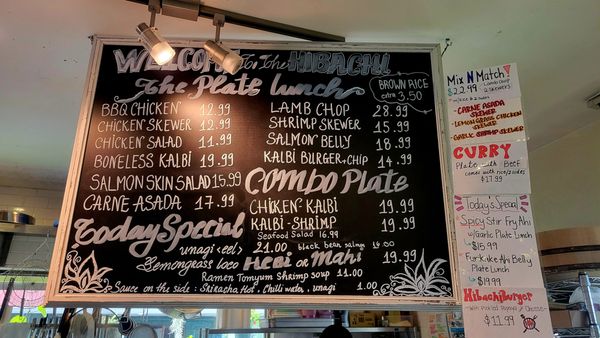 WELCOME to the HIBACHI
The Plate lunch
BBQ CHICKEN 12.99
CHICKEN SKEWER 12.99
CHICKEN SALAD 11.99
BONELESS KALBI 19.99
SALMON SKIN SALAD 15.99
CARNE ASADA 17.99
BROWN RICE
extra 3.50
LAMB CHOP 28.99
SHRIMP SKEWER 15.99
SALMON BELLY 18.99
KALBI BURGER+CHIP 14.99
COMBO Plate
CHIKEN KALBI 19.99
KALBI-SHRIMP 19.99
Seafood Salad 16.99
Today Special
unagi <eel> 21.00
black bean
Lemongrass loco HEBI OR MAHI 19.99
Ramen Tomyum Shrimp soup 11.00
Sauce on the side: Sriracha Hot, Chilli water, unagi 1.00
Mix N Match!
$22.99
2 SKEWERS
- CARNE ASADA SKEWER
- LEMON GRASS CHICKEN SKEWER
- GARLIC SHRIMP SKEWER
CURRY
Plate with Beef
comes with rice/sides
$17.99
Today's Special
Spicy Stir Fry Ahi
w/Garlic Plate Lunch
$15.99
Furikake Ahi Belly
Plate Lunch
$19.99
HibachiBurger
$11.99